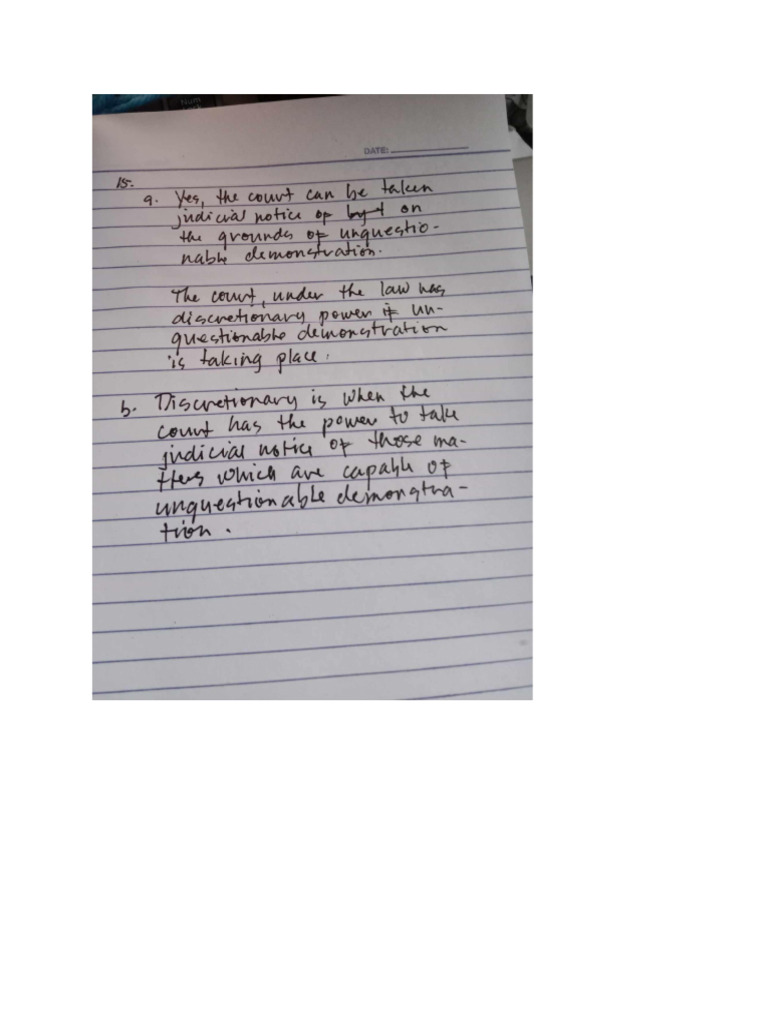 Num
Lock
DATE:
15.
a. Yes, the court can be taken
judicial notice of on
the grounds of unquestio-
nable demonstration.
The court, under the law has
discretionary power if un-
questionable demonstration
is taking place.
b. Discretionary is when the
court has the power to take
judicial notice of those ma-
tters which are capable of
unquestionable demonstra-
tion.